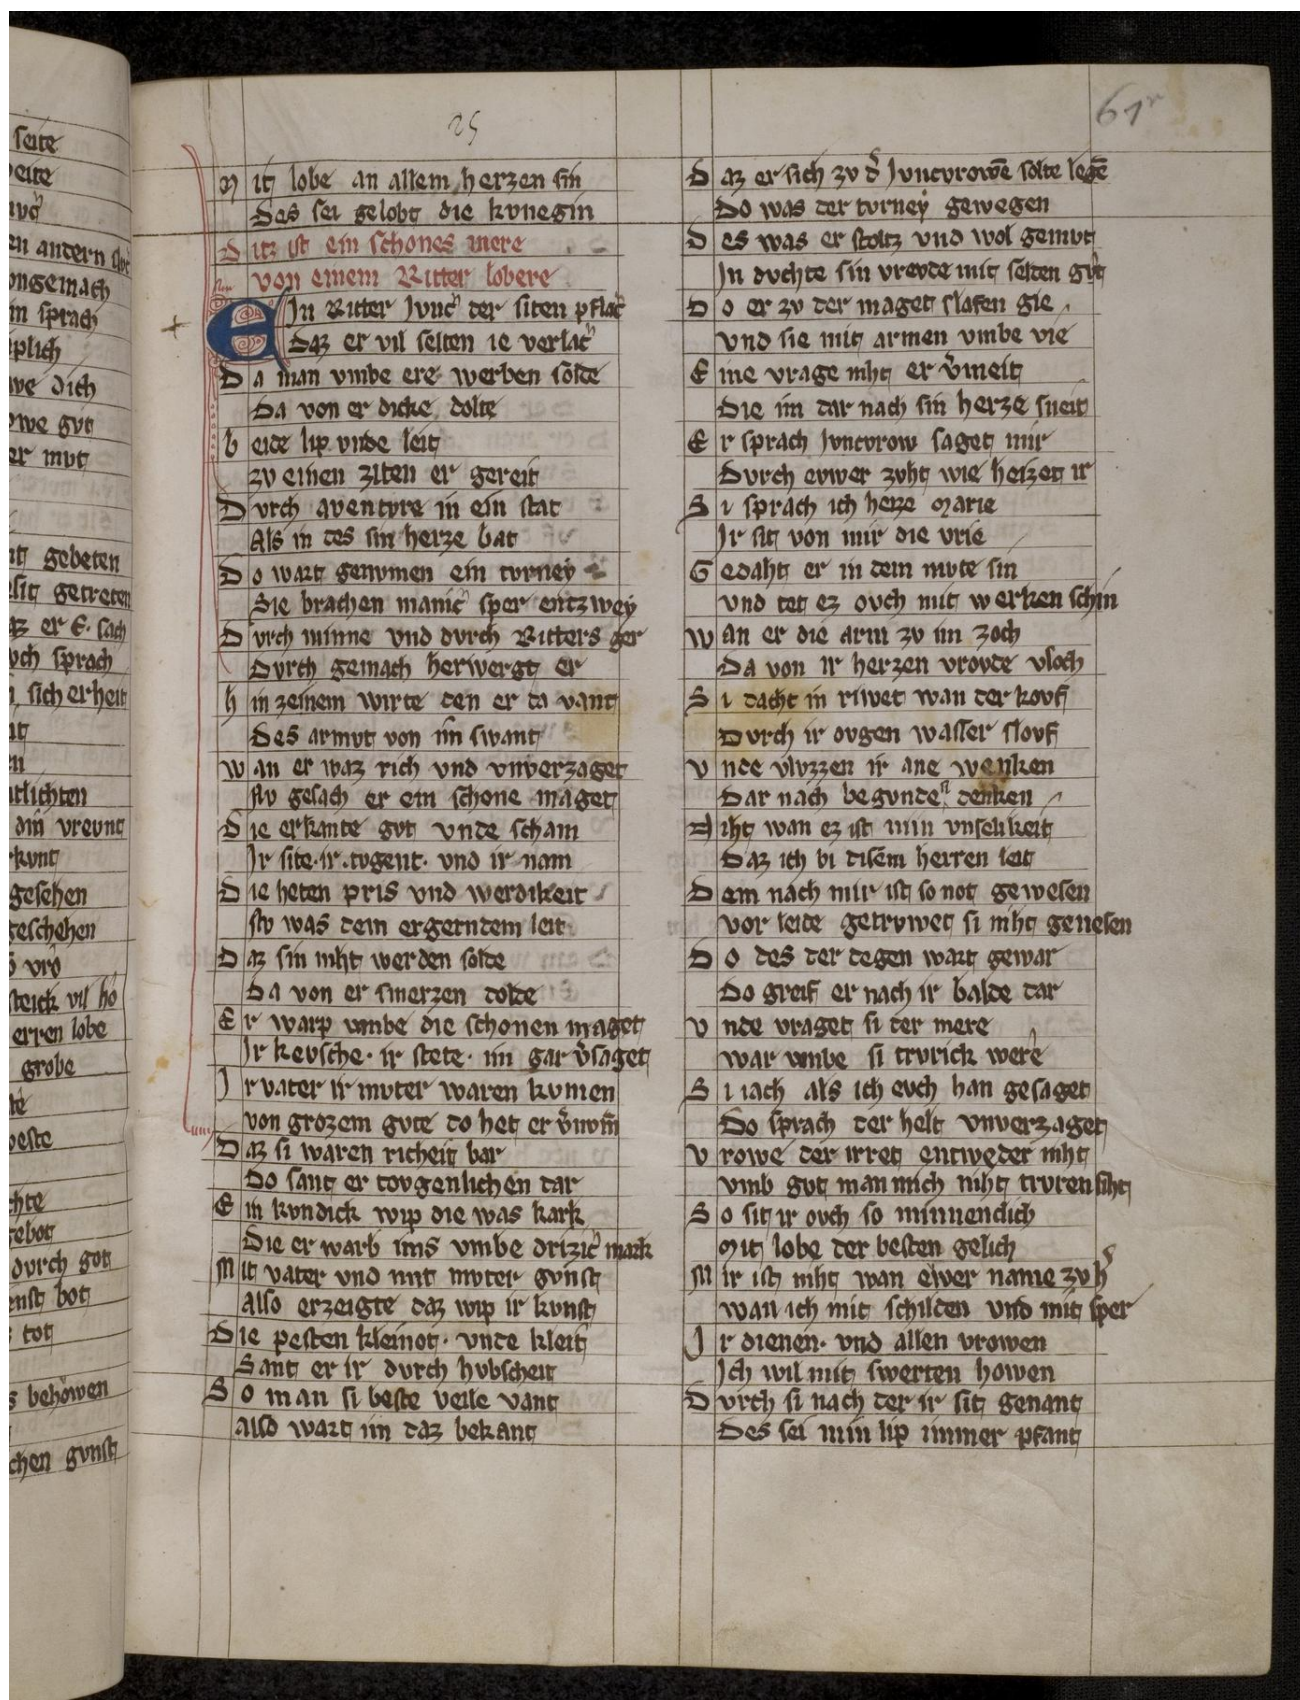 seite
25
61r
Mit lobe an allem herzen sin
Des sei gelobt die kvnegin
Ditz ist ein schones mere
von einem Ritter lobere
EIn Ritter Jvnc᷑ der siten pflac᷑
Daz er vil selten ie verlac᷑
Da man vmbe ere werben solde
Da von er dicke dolte
beide lip vnde leit
zv einen ziten er gereit
Dvrch aventvre in ein stat
Als in des sin herze bat
Do wart genvmen ein tvrney
Sie brachen manic᷑ sper entzwey
Dvrch minne vnd dvrch Ritters ger
Dvrch gemach herwergt er
hin zeinem wirte den er da vant
Des armvt von im swant
wan er waz rich vnd vnverzaget
Nv gesach er ein schone maget
Die erkante got vnde scham
Ir site·ir·tvgent· vnd ir nam
Die heten pris vnd werdikeit
Nv was dem ergerndem leit
Daz sin niht werden solde
Da von er smerzen dolde
Er warp vmbe die schonen maget
Ir kevsche· ir stete· im gar v᷑saget
Ir vater ir mvter waren kvmen
von grozem gvte do het er v᷑nvm̄
Daz si waren richeit bar
Do sant er tovgenlichen dar
Ein kvndick wip die was kark
Die er warb ims vmbe drizic᷑ mark
Mit vater vnd mit mvter gvnst
Also erzeigte daz wip ir kvnst
Die pesten kleinot· vnde kleit
Sant er ir dvrch hvbscheit
So man si beste veile vant
Also wart im daz bekant
Daz er sich zv d᷑ Jvncvrowē solte legē
Do was der tvrney gewegen
Des was er stoltz vnd wol gemvt
In dvchte sin vrevde mit selden gv᷑t
Do er zv der maget slafen gie
vnd sie mit armen vmbe vie
Eine vrage niht er v᷑meit
Die im dar nach sin herze sneit
Er sprach Jvncvrow saget mir
Dvrch evwer zvht wie heizet ir
Si sprach ich heize Marie
Ir sit von mir die vrie
Gedaht er in dem mvte sin
vnd tet ez ovch mit werken schin
wan er die arm zv im zoch
Da von ir herzen vrovde vloch
Si dacht in rivwet wan der kovf
Dvrch ir ovgen wasser slovf
vnde vlvzzen ir ane wenken
Dar nach begvnde er denken
Niht wan ez ist min vnselikeit
Daz ich bi disem herren leit
Dem nach mir ist so not gewesen
vor leide getrvwet si niht genesen
Do des der degen wart gewar
Do greif er nach ir balde dar
vnde vraget si der mere
war vmbe si trvrick were
Si iach als ich evch han gesaget
Do sprach der helt vnverzaget
vrowe der irret entweder niht
vmb gvt man mich niht trvren siht
So sit ir ovch so minnenclich
Mit lobe der besten gelich
Mir ist niht wan ewer name zv h᷑
wan ich mit schilden vnd mit sper
Ir dienen· vnd allen vrowen
Ich wil mit swerten howen
Dvrch si nach der ir sit genant
Des sei min lip immer pfant